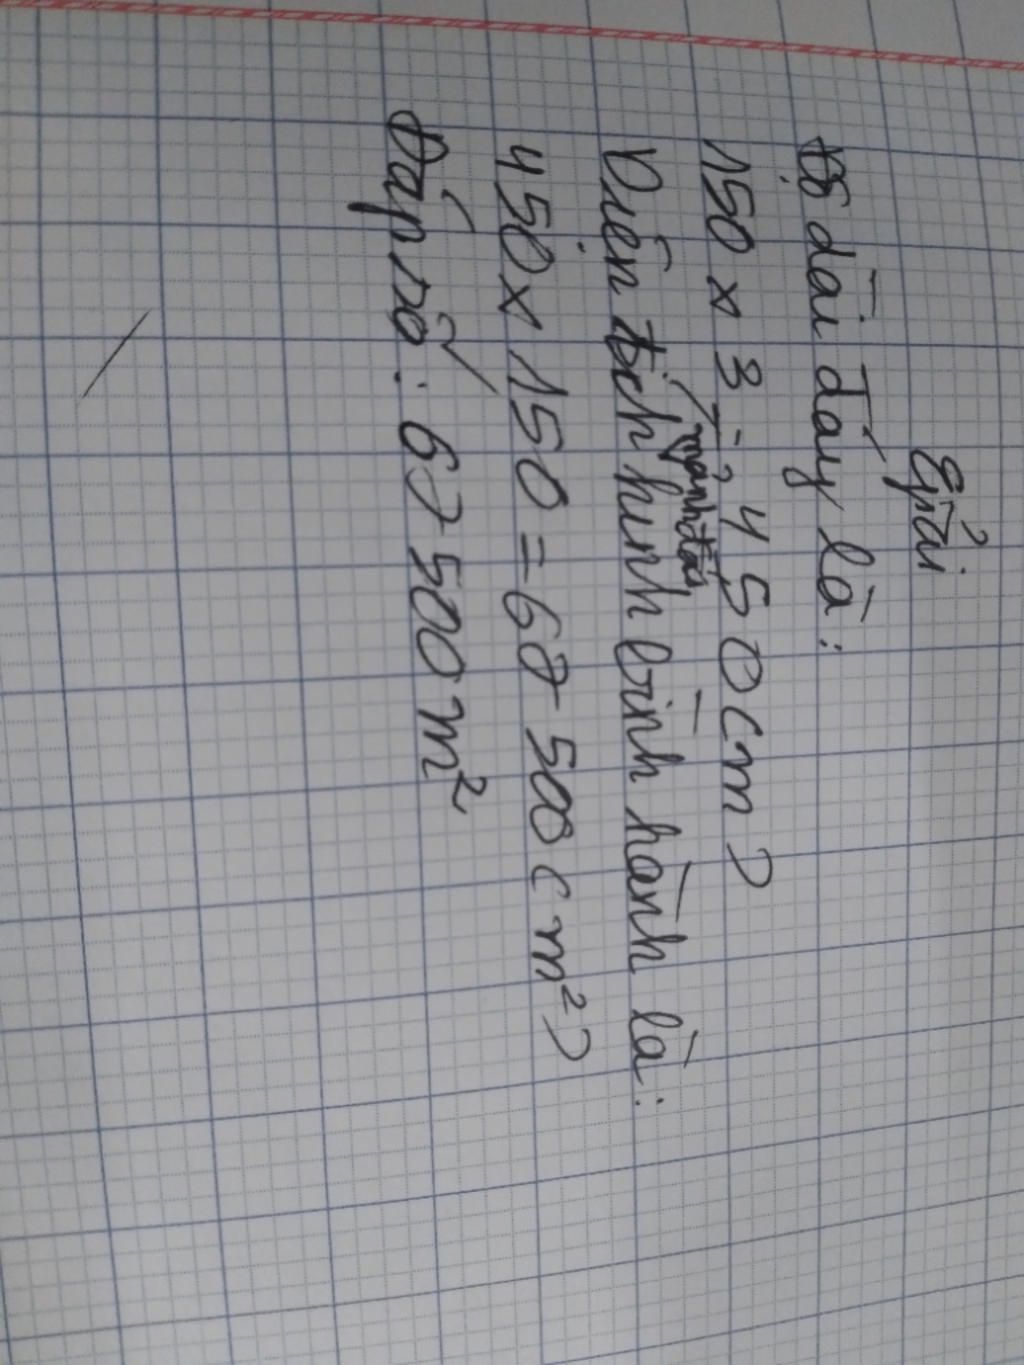 Giải
Độ dài đáy là:
150 x 3 = 450 (m)
mảnh đất
Diện tích hình bình hành là:
450 x 150 = 67 500 (m²)
Đáp số: 67 500 m²